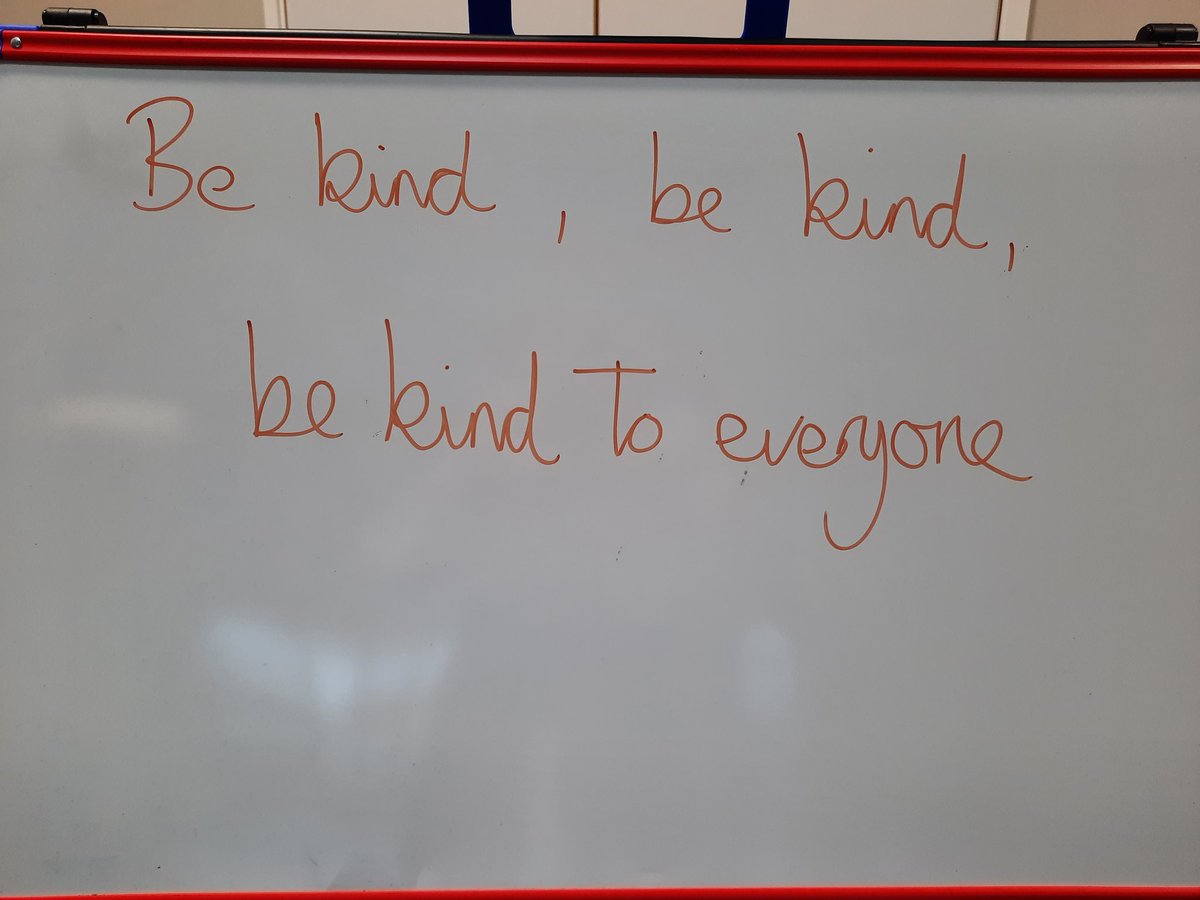 Be kind, be kind,
be kind To everyone